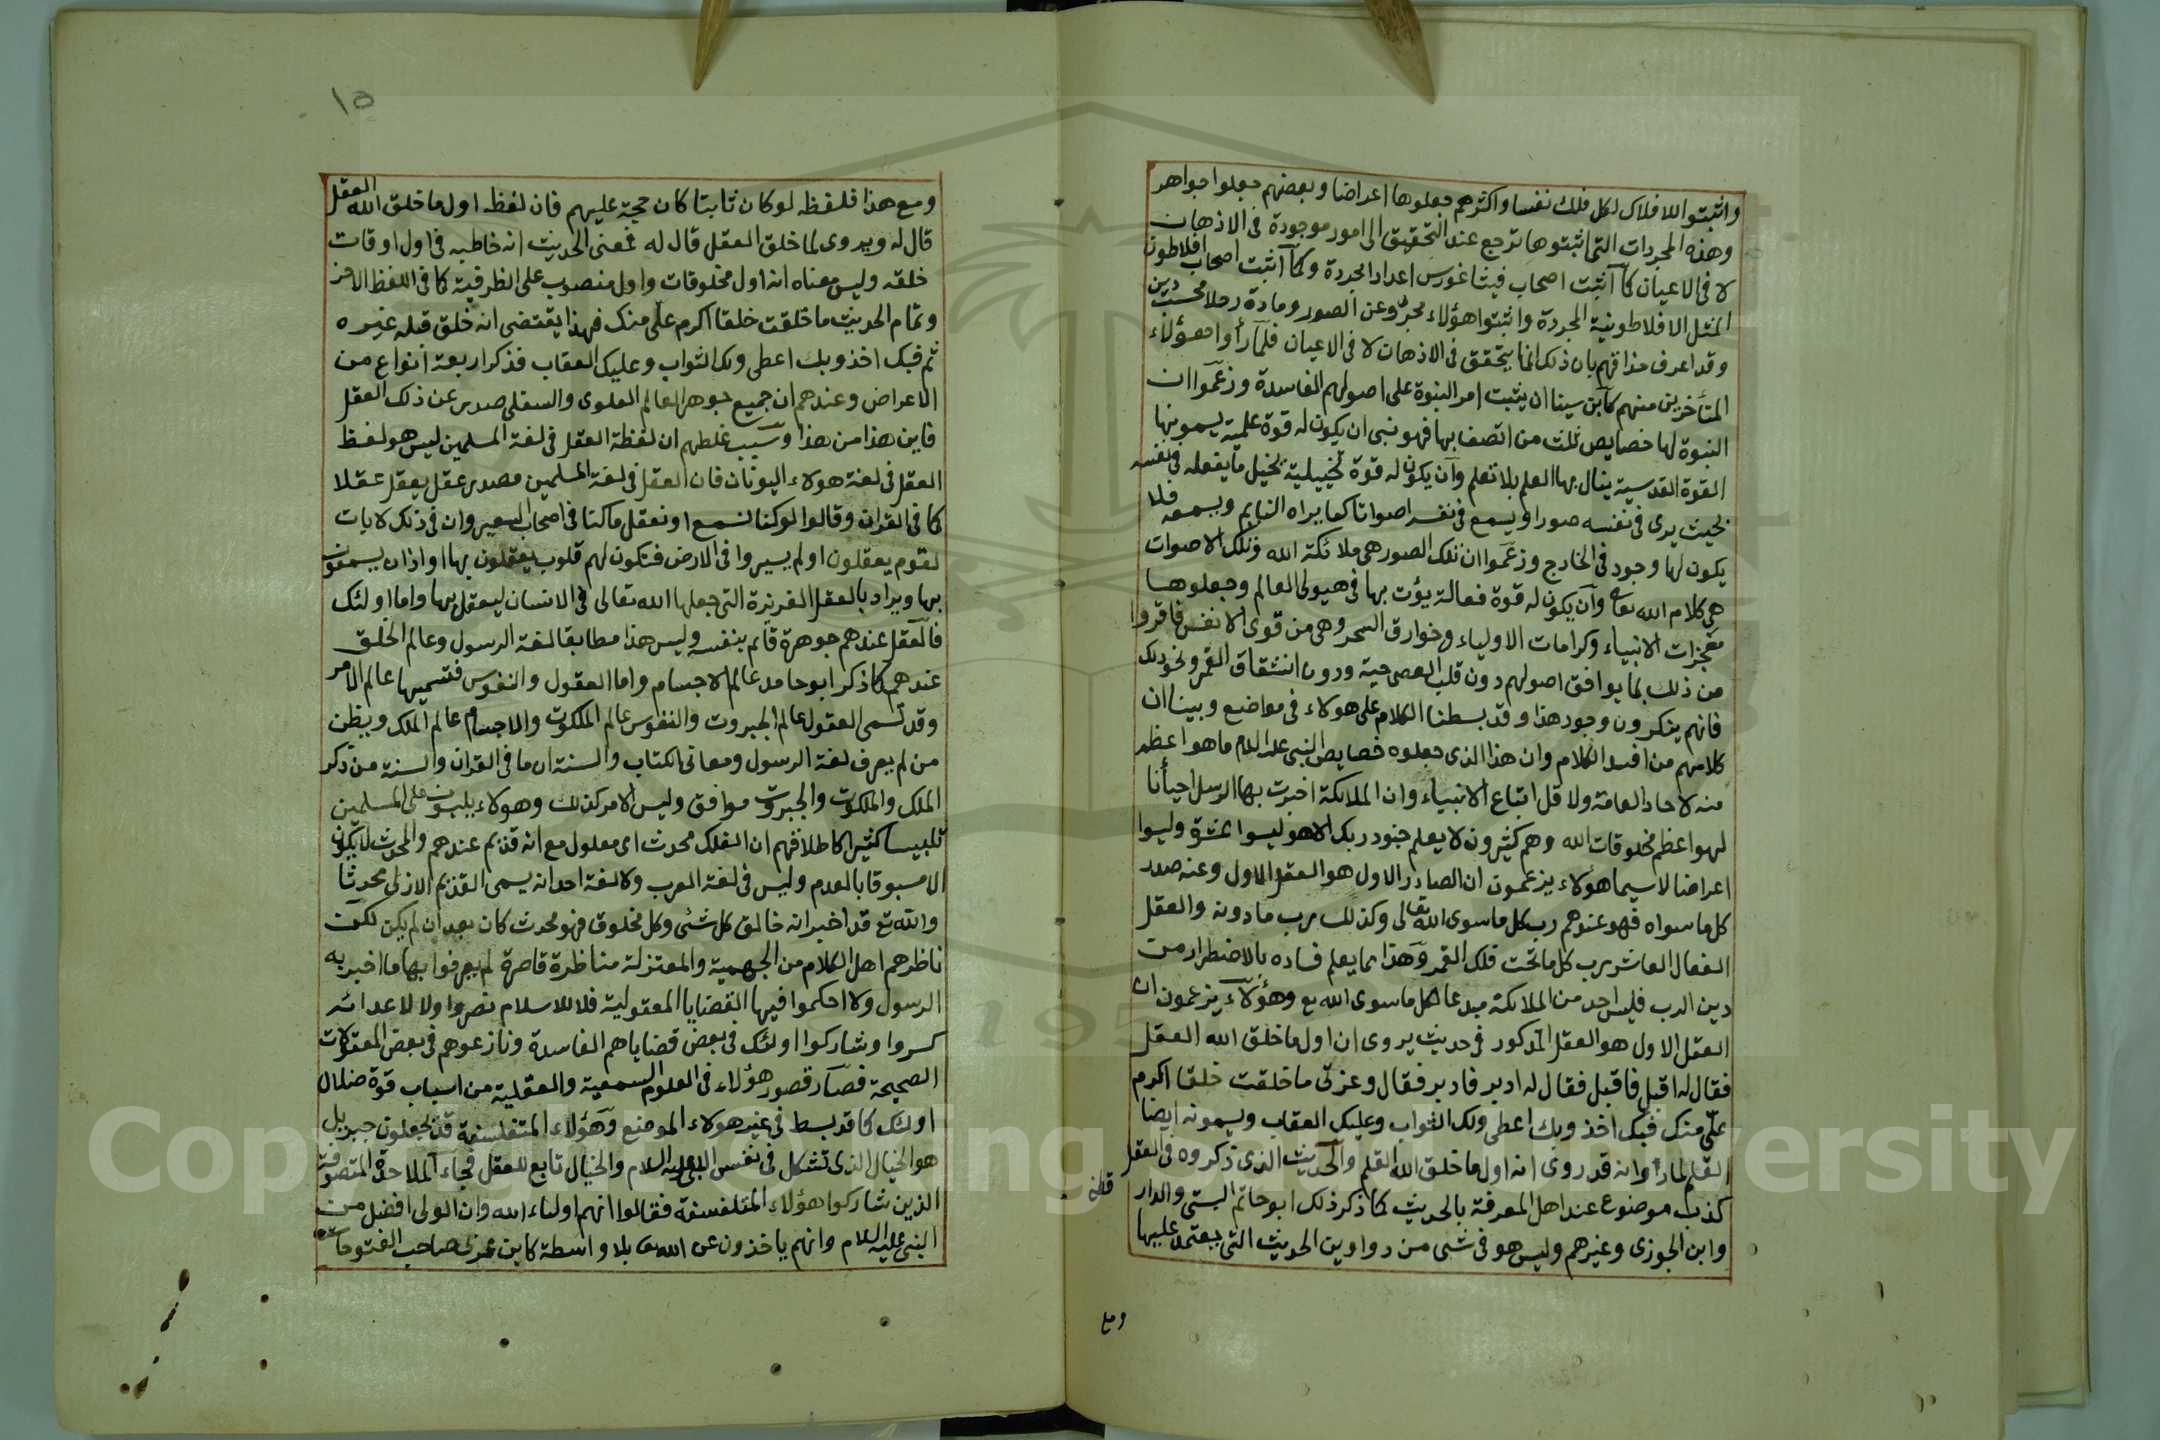 واثبتوا للافلاك لكل فلك نفسا واكثرهم جعلوها اعراضا وبعضهم جعلوا جواهر
وهذه المجردات التي اثبتوها ترجع عند التحقيق الى امور موجودة في الاذهان
لا في الاعيان كما اثبت اصحاب فيثاغورس اعدادا مجردة وكما اثبت اصحاب افلاطون
المثل الافلاطونية المجردة واثبتوا هؤلاء مجرد وعن الصور ومادة رحلا
وقد اعرف حذاقهم بان ذلك انما يتحقق في الاذهان لا في الاعيان فلما رأوا هؤلاء
المتأخرين منهم كابن سينا ان يثبت امر النبوة على اصولهم الفاسدة وزعموا ان
النبوة لها خصايص ثلث من اتصف بها فهو نبي ان يكون له قوة علمية يسمونها
القوة القدسية ينال بها العلم بلا تعلم وان يكون له قوة تخييلية تخيل ما يفعله في نفسه
بحيث يرى في نفسه صورا ويسمع في نفسه اصواتا كما يراه النايم ويسمعه فلا
يكون لها وجود في الخارج وزعموا ان تلك الصور هي ملائكة الله وتلك الاصوات
هي كلام الله تعالى وان يكون له قوة فعالة يؤت بها في هيولى العالم وجعلوها
معجزات الانبياء وكرامات الاولياء وخوارق السحر وهي من قوى الانفس فاقروا
من ذلك بما يوافق اصولهم دون قلب العصى حية ودون انشقاق القمر ونحو ذلك
فانهم ينكرون وجود هذا وقد بسطنا الكلام على هولاء في مواضع وبينا ان
كلامهم من افسد الكلام وان هذا الذي جعلوه خصايص النبي عليه السلام ما هو اعظم
منه لاحاد العامة ولا قل اتباع الانبياء وان الملائكة اخبرت بها الرسل احيأنا
لهو اعظم مخلوقات الله وهم كثيرون لا يعلم جنود ربك الا هو ليسوا عشرة وليسوا
اعراضا لاسيما هؤلاء يزعمون ان الصادر الاول هو العقل الاول وعنه صدر
كل ما سواه فهو عندهم رب كل ما سوى الله تعالى وكذلك رب ما دونه والعقل
الفعال العاشر رب كل ما تحت فلك القمر وهذا مما يعلم فساده بالاضطرار من
دين الرب فليس احد من الملائكة مبدعا لكل ما سوى الله تع وهؤلاء يزعمون ان
العقل الاول هو العقل المذكور في حديث يروى ان اول ما خلق الله العقل
فقال له اقبل فاقبل فقال له ادبر فادبر فقال وعزتي ما خلقت خلقا اكرم
علي منك فبك اخذ وبك اعطي ولك الثواب وعليك العقاب ويسمونه ايضا
القلم لما رأوا انه قد روى انه اول ما خلق الله القلم والحديث الذي ذكروه في العقل
كذب موضوع عند اهل المعرفة بالحديث كما ذكر ذلك ابو حاتم البستي والدار
قطني
وابن الجوزي وغيرهم وليس هو في شي من دواوين الحديث التي يعتمد عليها
ومع
١٥
ومع هذا فلفظه لو كان ثابتا كان حجة عليهم فان لفظه اول ما خلق الله العقل
قال له ويروى لما خلق العقل قال له فمعنى الحديث انه خاطبه في اول اوقات
خلقه وليس معناه انه اول مخلوقات واول منصوب على الظرفية كما في اللفظ الاخر
وتمام الحديث ما خلقت خلقا اكرم علي منك فهذا يقتضى انه خلق قبله غيره
ثم فبك اخذ وبك اعطى ولك الثواب وعليك العقاب فذكر اربعة انواع من
الاعراض وعندهم ان جميع جوهر العالم العلوى والسفلى صدر عن ذلك العقل
فاين هذا من هذا وسبب غلطهم ان لفظة العقل في لغة المسلمين ليس هو لفظ
العقل في لغة هولاء اليونان فان العقل في لغة المسلمين مصدر عقل يعقل عقلا
كما في القران وقالوا لو كنا نسمع او نعقل ما كنا في اصحاب السعير وان في ذلك لايات
لقوم يعقلون اولم يسيروا في الارض فتكون لهم قلوب يعقلون بها او اذان يسمعون
بها ويراد بالعقل الغريزة التي جعلها الله تعالى في الانسان ليعقل بها واما اولئك
فالعقل عندهم جوهرة قائم بنفسه وليس هذا مطابقا لغة الرسول وعالم الخلق
عندهم كما ذكر ابو حامد عالم الاجسام واما العقول والنفوس فتسميها عالم الامر
وقد تسمى العقول عالم الجبروت والنفوس عالم الملكوت والاجسام عالم الملك ويظن
من لم يعرف لغة الرسول ومعاني الكتاب والسنة ان ما في القران والسنة من ذكر
الملك والملكوت والجبروت موافق وليس الامر كذلك وهولاء يلبسون على المسلمين
تلبيسا كثيرا كاطلاقهم ان الفلك محدث اى معلول مع انه قديم عندهم والمحدث لا يكون
الا مسبوقا بالعدم وليس في لغة العرب ولا لغة احد انه يسمى القديم الازلى محدثا
والله تع قد اخبر انه خالق كل شئى وكل مخلوق فهو محدث كان بعد ان لم يكن لكن
ناظرهم اهل الكلام من الجهمية والمعتزلة مناظرة قاصرة لم يعرفوا بها ما اخبر به
الرسول ولا احكموا فيها القضايا المعقولية فلا للاسلام نصروا ولا لاعدائه
كسروا وشاركوا اولئك في بعض قضاياهم الفاسدة ونازعوهم في بعض المعقولات
الصحيحة فصار قصور هؤلاء في العلوم السمعية والعقلية من اسباب قوة ضلال
اولئك كما قد بسط في غير هولاء الموضع وهؤلاء المتفلسفة قد يجعلون جبريل
هو الخيال الذى تشكل في نفس النبي عليه السلام والخيال تابع للعقل فجاء الملاحدة المتصوفة
الذين شاركوا هؤلاء المتفلسفة فقالوا انهم اولياء الله وان الولى افضل من
النبي عليه السلام وانهم ياخذون عن الله بلا واسطة كابن عربى صاحب الفتوحات
Copyright © King Saud University
195